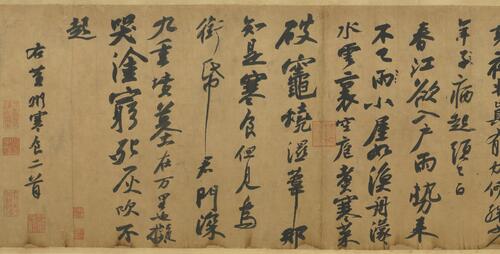 夜半真有力何殊少
年子病起頭已白
春江欲入戶雨勢來
不已雨小屋如漁舟濛々
水雲裏空庖煮寒菜
破竈燒濕葦那
知是寒食但見烏
銜帋君門深
九重墳墓在万里也擬
哭塗窮死灰吹不
起
右黃州寒食二首